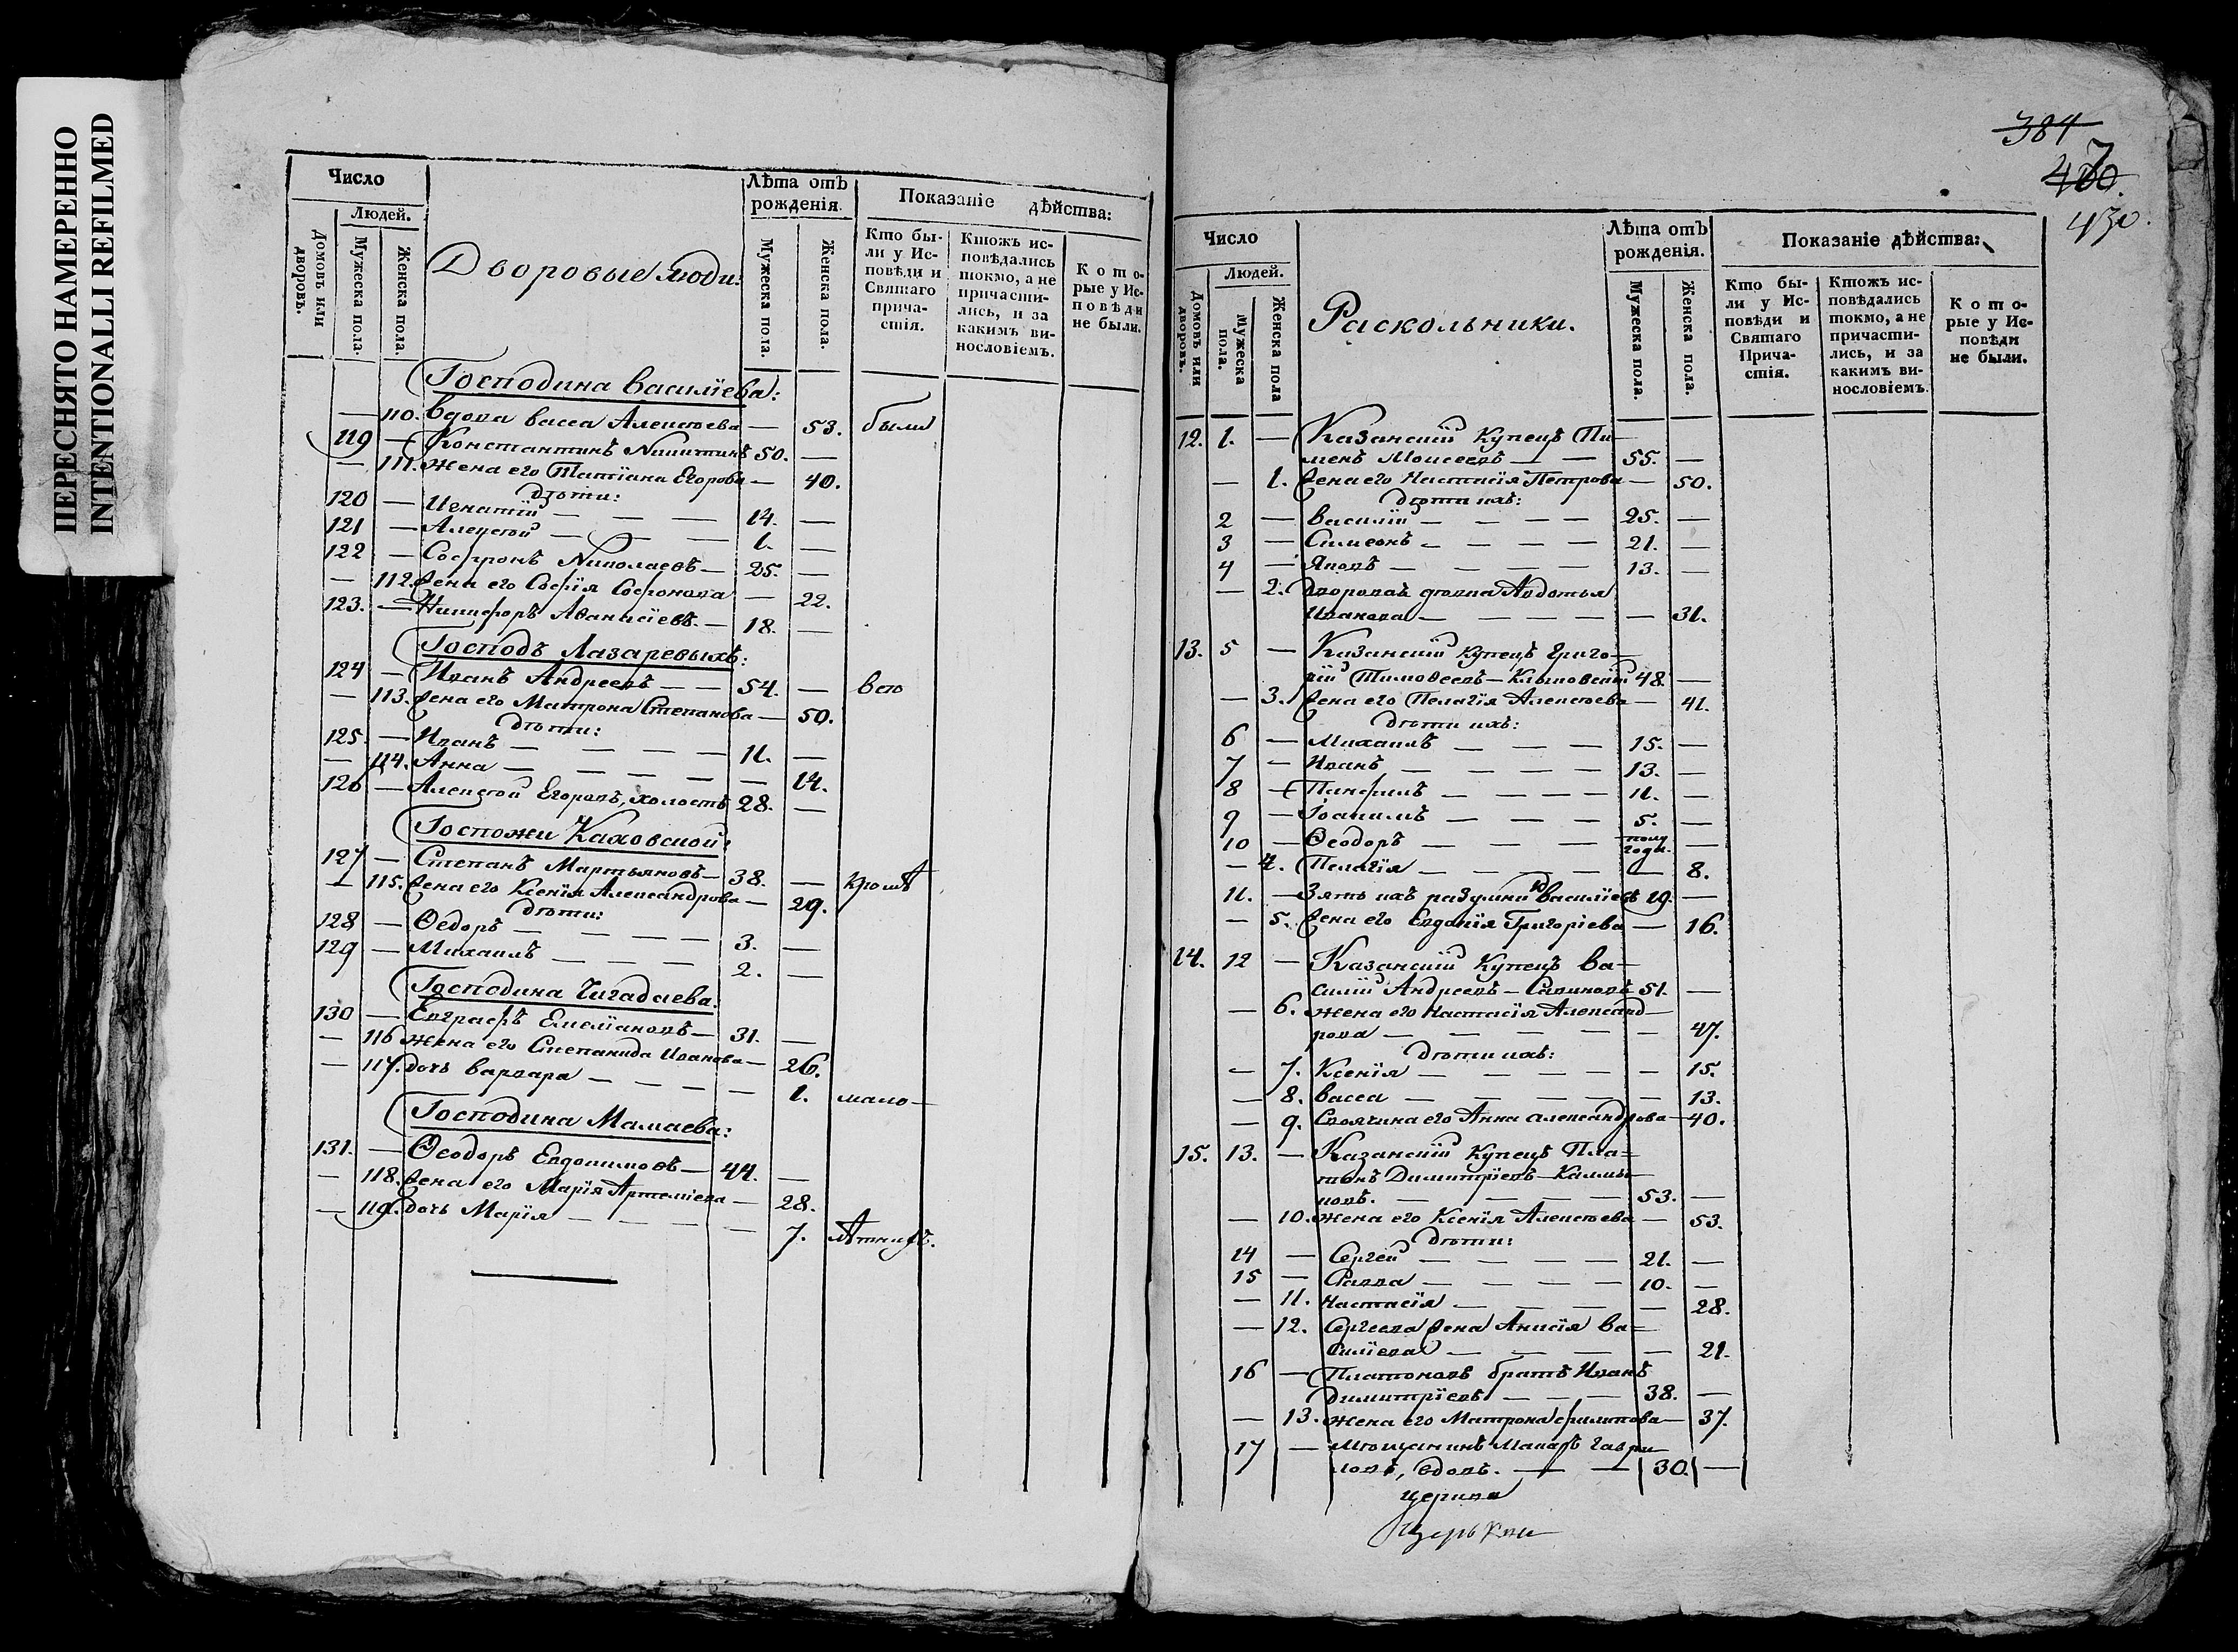 ПЕРЕСНЯТО НАМЕРЕННО
INTENTIONALLI REFILMED
Число
Людей.
Домовъ или дворовъ.
Мужеска пола.
Женска пола.
Дворовые люди:
Лѣта отъ рожденія.
Мужеска пола.
Женска пола.
Показаніе дѣйства:
Кто бы-
ли у Ис-
повѣди и
Святаго
прича-
стія.
Ктожъ ис-
повѣдались
токмо, а не
причасти-
лись, и за
какимъ ви-
нословіемъ.
Кото-
рые у Ис-
повѣди
не были.
Господина Василіева:
— 110. Вдова Васса Алексѣева — 53. были
119 — Константинъ Никитинъ 50. —
— 111. Жена его Татіана Егорова — 40.
Дѣти:
120 — Игнатій — — — 14. —
121 — Алексѣй — — — 1. —
122 — Софронъ Николаевъ — 25. —
— 112. Жена его Софія Софонова — 22.
123. — Никифоръ Аѳанасіевъ. — 18. —
Господъ Лазаревыхъ:
124 — Иванъ Андреевъ — — 54. — всѣ
— 113. Жена его Матрона Степанова — 50.
Дѣти:
125. — Иванъ — — — — 11. —
— 114. Анна — — — — — 14.
126 — Алексѣй Егоровъ, холостъ 28. —
Госпожи Каховской:
127 — Степанъ Мартьяновъ — 38. — кромѣ
— 115. Жена его Ксенія Александрова — 29.
Дѣти:
128 — Ѳедоръ — — — — 3. —
129 — Михаилъ — — — 2. —
Господина Чигадаева:
130 — Евграфъ Емеліановъ — 31. —
— 116 Жена его Степанида Иванова — 26.
— 117. Дочь Варвара — — — — 1. мало-
Господина Мамаева:
131. — Ѳеодоръ Евдокимовъ — 44. —
— 118. Жена его Марія Артеміева — 28.
— 119. Дочь Марія — — — — 7. лѣтнихъ.
384
430.
Число
Людей.
Домовъ или дворовъ.
Мужеска пола.
Женска пола
Раскольники.
Лѣта отъ рожденія.
Мужеска пола
Женска пола.
Показаніе дѣйства:
Кто бы-
ли у Ис-
повѣди и
Святаго
Прича-
стія.
Ктожъ ис-
повѣдались
токмо, а не
причасти-
лись, и за
какимъ ви-
нословіемъ.
Кото-
рые у Ис-
повѣди
не были.
12. 1. — Казанскій Купецъ Пи-
менъ Моисеевъ — — 55. —
— 1. Жена его Настасія Петрова — 50.
Дѣти ихъ:
2 — Василій — — — — 25. —
3 — Симеонъ — — — — 21. —
4 — Яковъ — — — — 13. —
— 2. Дворовая дѣвка Авдотья
Иванова — — — — — 31.
13. 5 — Казанскій Купецъ Григо-
рій Тимоѳеевъ — 48. —
— 3. Жена его Пелагія Алексѣева — 41.
Дѣти ихъ:
6 — Михаилъ — — — 15. —
7 — Иванъ — — — — 13. —
8 — Панфилъ — — — — 11. —
9 — Іоакимъ — — — — 5. —
10 — Ѳеодоръ — — — полу года. —
— 4. Пелагія — — — — — 8.
11. — Зять ихъ Василіевъ 19. —
— 5. Жена его Евдокія Григоріева — 16.
14. 12 — Казанскій Купецъ Ва-
силій Андреевъ — 51. —
— 6. Жена его Настасія Александ-
рова — — — — — 47.
Дѣти ихъ:
— 7. Ксенія — — — — — 15.
— 8. Васса — — — — — 13.
— 9. Своячина его Анна Александрова — 40.
15. 13. — Казанскій Купецъ Пла=
тонъ Димитріевъ — Калмы-
ковъ. — — — — 53. —
— 10. Жена его Ксенія Алексѣева — 53.
Дѣти:
14 — Сергей — — — — 21. —
15 — Савва — — — — 10. —
— 11. Настасія — — — — 28.
— 12. Сергеева Жена Анисія Ва=
силіева — — — — — 21.
16 — Платоновъ братъ Иванъ
Димитріевъ — — — 38. —
— 13. Жена его Матрона Филипова — 37.
17 — Мѣщанинъ Макаръ Гаври-
ловъ, вдовъ. — — 30. —
Церкви